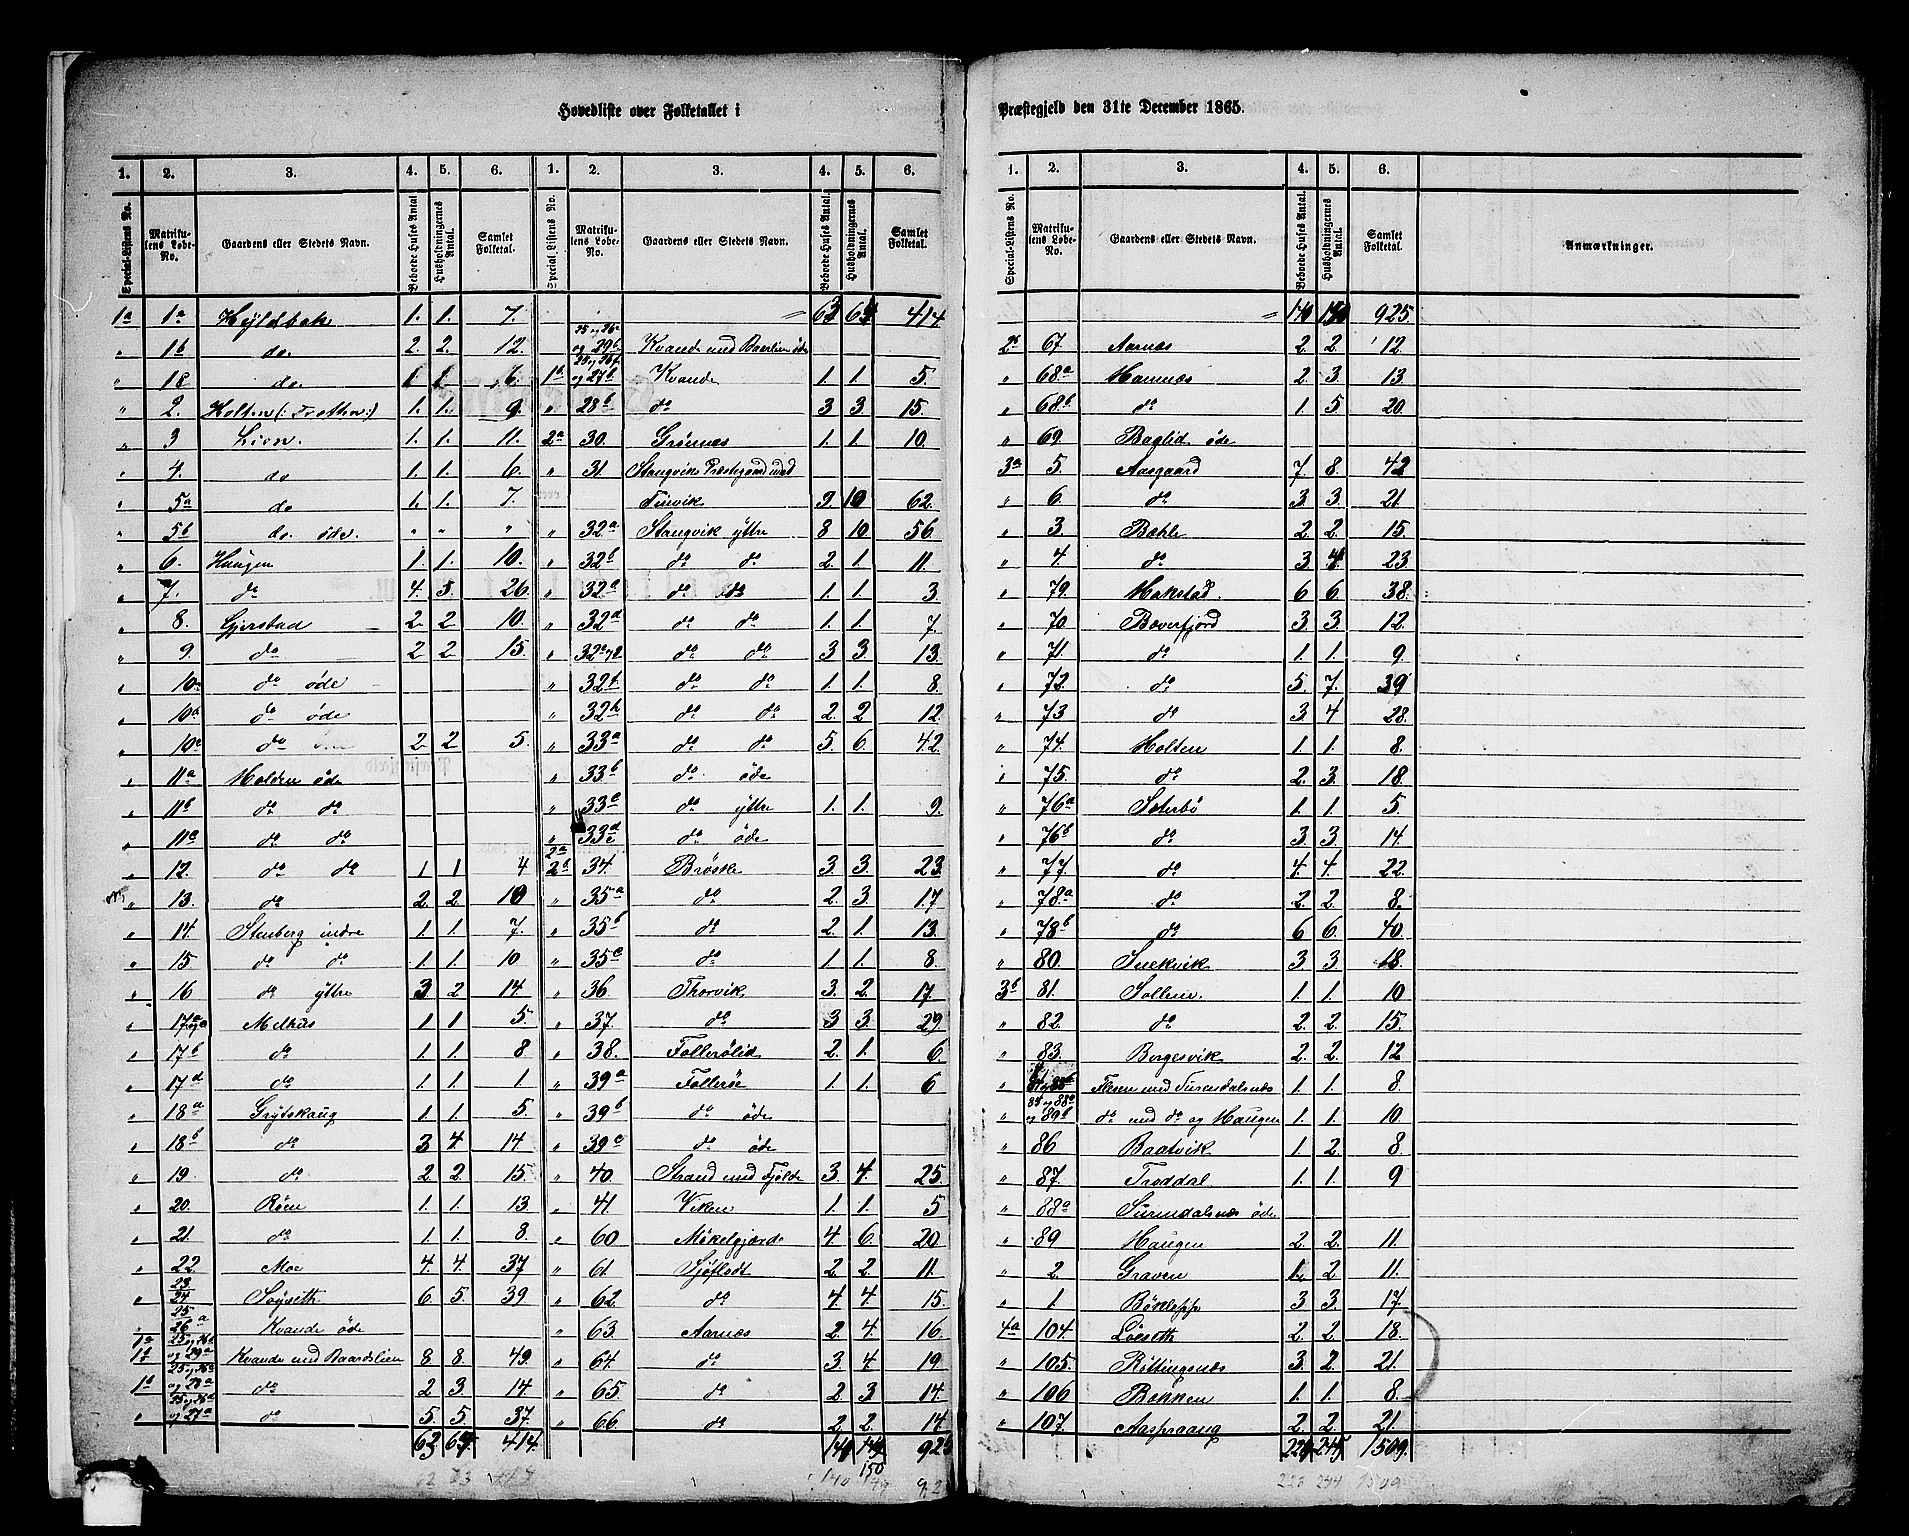 Hovedliste over Folketallet i
1. 2. 3. 4. 5. 6. 1. 2. 3. 4. 5. 6.
Special-Listens No. Matrikulens Løbe-No. Gaardens eller Stedets Navn. Beboede Huses Antal Husholdningernes Antal. Samlet Folketal. Special-Listens No. Matrikulens Løbe-No. Gaardens eller Stedets Navn. Beboede Huses Antal. Husholdningernes Antal Samlet Folketal.
1a 1a 1. 1. 7. 414
" 1b do. 2. 2. 12. Kvande med Baarlien öde
" do. 1. 6. 1b og 27b Kvande 1. 1. 5.
" 2. Holten (: Trötten :) 1. 1. 9. " 28b do 3 3. 15.
" 3 1. 1. 11. 2a 30. Grönnæs 1. 1. 10.
" 4. do 1. 1. 6. " 31. Stangvik Præstegaard med
" 5a do 1. 1. 7. 9. 10 62.
" 5b do. öde. " " " " 32a Stangvik yttre 8 10. 56.
" 6. Haugen 1. 1. 10. " 32b do do 2. 1. 11.
" 7. do 4. 5. 26. " do do 1. 1. 3
" 8. Gjerstad 2. 2 10. " 32d do do 1. 1. 7.
" 9. do 2 2. 15. " do do 3 3. 13.
" do öde " do do 1. 1. 8.
" 10b do öde " 32h do do 2. 2 12.
" do 2. 2. 5. " 33a do do 5. 6. 42.
" 11a Holden öde " 33b do öde
" 11b do do " do yttre 1. 1. 9.
" do do " 33d do öde
" 12. do do 1 1 4 2b 34. Bröske 3. 3. 23.
" 13. do 2. 2. 10 " 35a do 2. 3. 17.
" 14. Stenberg indre 1. 1 7. " 35b do 2. 1. 13.
" 15 do do 1. 1. 10 " do 1. 1. 8.
" 16 do yttre 3 2 14. " 36. Thorvik 3. 2. 17.
" Melhus 1. 1 5. " 37. do 3 3. 29.
" 17b do 1. 1. 8 " 38. 2. 1. 6.
" 17d do 1. 1. 1 " 39a 1. 1. 6
" 18a Grytskaug 1. 1. 5. " 39b do öde
" 18b do 3 4. 14 " do öde
" 19 do 2 2. 15. " 40 Strand med Fjelde 3 4. 25.
" 20. Röen 1. 1. 13. " 41. Viken 1. 1. 5
" 21. do 1. 1 8. " 60 4 6. 20
" 22. Moe 4. 4. 37 " 61. Sjöflodt 2. 2. 11.
23
" 24 Söyseth 6. 5. 39 " 62. do 4. 4. 15.
25
26a Kvande öde " 63. Aarnæs 2. 4. 16.
Kvande med Baardslien 8 8. 49. " 64. do 3. 4 19
do 2. 3. 14. " 65 do 2 3 14.
" og 27a do 5. 5. 37. " 66. do 2 2. 14
63 414. 925
150
Præstegjeld den 31te December 1865.
1. 2. 3. 4. 5. 6.
Special-Listens No. Matrikulens Løbe-No. Gaardens eller Stedets Navn. Beboede Huses Antal. Husholdningernes Antal. Samlet Folketal. Anmærkninger.
925.
2b 67. Aarnæs 2. 2. 12.
" 68a Hamnæs 2. 3. 13.
" 68b do 1. 5 20.
" 69. Baglid öde
3a 5. Aasgaard 7. 8. 42
" 6. do 3 3. 21.
" 3. Bæhle 2 2. 15.
" 4. do 3 4. 23.
" 79. 6 6. 38.
" 70 Bæverfjord 3. 3. 12.
" 71. do 1. 1. 9.
" 72. do 5. 7. 39
" 73 do 3 4 28.
" 74. Holten 1. 1. 8.
" 75. do 2. 3. 18.
" 76a Sæterbö 1. 1. 5.
" 76b do 3. 3. 14.
" 77. do 4. 4. 22.
" 78a do 2. 2. 8.
" 78b do 6 6. 40.
" 80. 3. 3. 18.
3b 81. Sollem. 1. 1. 10
" 82. do 2. 2. 15.
" 83. Börgesvik 2. 2. 12
" med Surendalsnæs 1. 1. 8.
" do med do og Haugen 1. 1. 10.
" 86 Baatvik 1. 2 8.
" 87. Troddal 1. 1. 9
" 88a Surendalsnæs öde
" 89 Haugen 2. 2. 11.
" 2. Graven 2 11.
" 1. 3 3. 17
4a 104. Löeseth 2. 2. 18.
" 105. Röttingsnæs 3. 2. 21.
" 106 Bekken 1. 1. 8.
" 107. 2. 2. 21.
1509.
223 244 1509